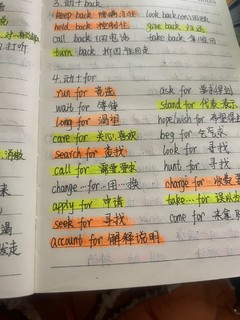 3. 动+ back
keep back 隐瞒; 阻止 look back
hold back 控制住 give back 归还
call back 回电话 take back
turn back 折回; 往回走
4. 动+ for
run for 竞选 ask for
wait for 等待 stand for 代表·表示
long for 渴望 hope/wish for 希望
care for 关心, 喜欢 beg for 乞求
search for 查找 look for 寻找
call for 需要, 要求 hunt for 寻找
change…for…用…换 charge for 收费
apply for 申请 take…for 误以为
seek for 寻找 come for
account for 解释说明